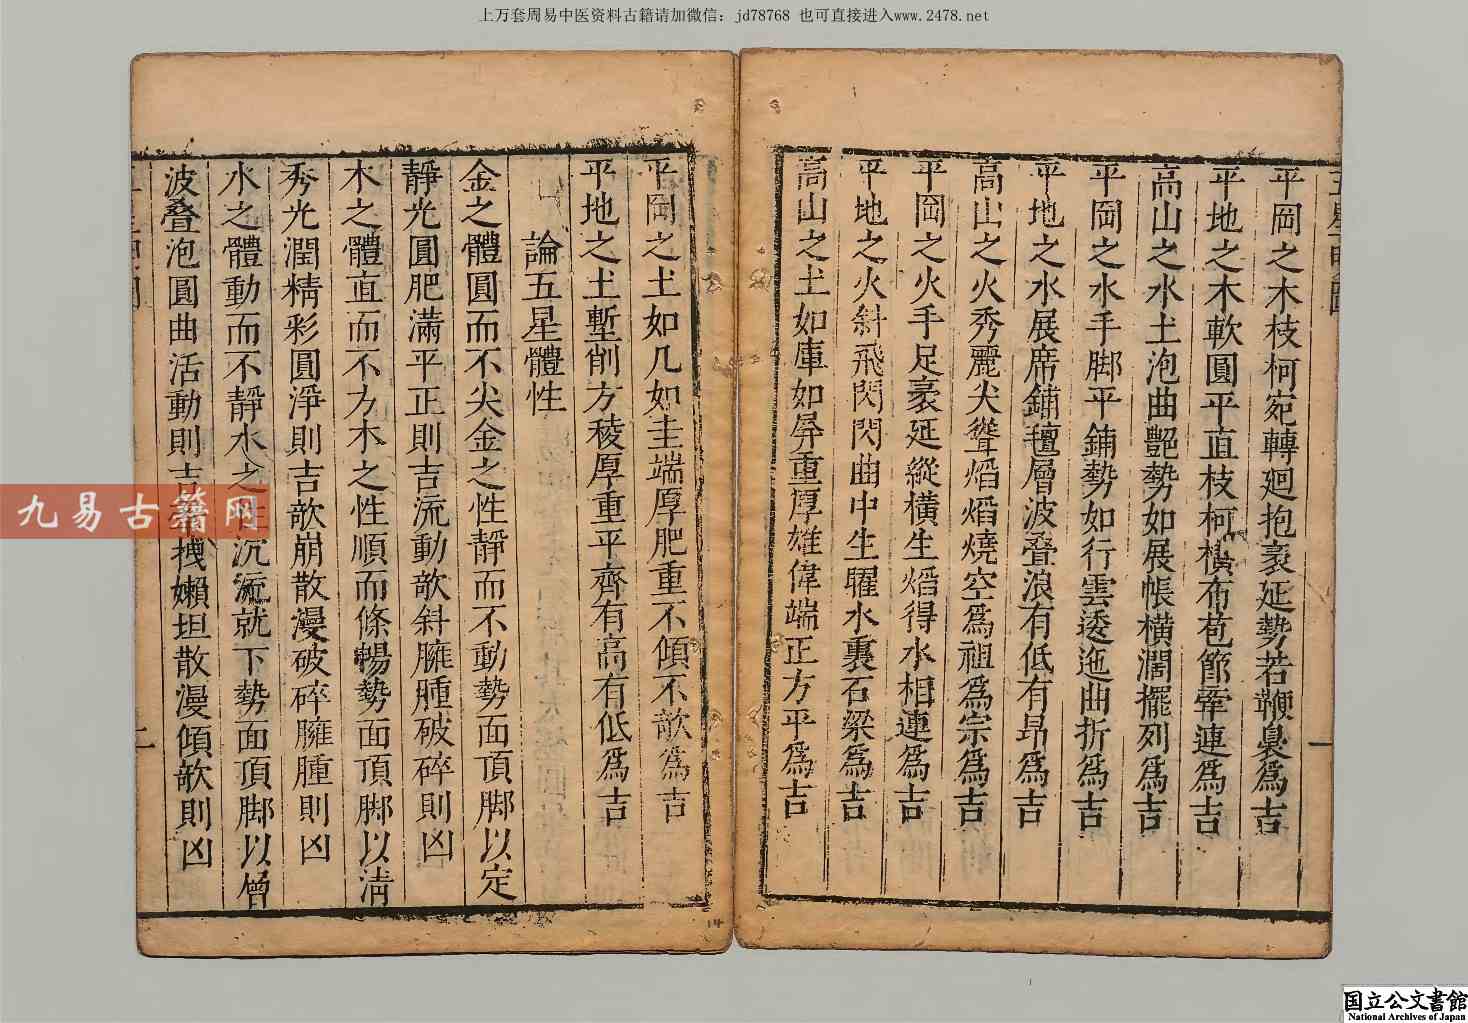 上万套周易中医资料古籍请加微信：jd78768 也可直接进入www.2478.net
平岡之木枝柯宛轉廻抱裊延勢若鞭裊為吉
平地之木軟圓平直枝柯橫布苞節牽連為吉
高山之水土泡曲艷勢如展帳橫濶擺列為吉
平岡之水手脚平鋪勢如行雲逶迤曲折為吉
平地之水展席鋪氊層波叠浪有低有昂為吉
高山之火秀麗尖聳焰焰燒空為祖為宗為吉
平岡之火手足裊延縱橫生焰得水相連為吉
平地之火斜飛閃閃曲中生曜水裏石梁為吉
高山之土如庫如屏重厚雄偉端正方平為吉
平岡之土如几如圭端厚肥重不傾不欹為吉
平地之土塹削方稜厚重平齊有高有低為吉
論五星體性
金之體圓而不尖金之性靜而不動勢面頂脚以定
靜光圓肥滿平正則吉流動欹斜臃腫破碎則凶
木之體直而不方木之性順而條暢勢面頂脚以清
秀光潤精彩圓淨則吉欹崩散漫破碎臃腫則凶
水之體動而不靜水之性沉流就下勢面頂脚以層
波叠泡圓曲活動則吉拽嬾坦散漫傾欹則凶
一
二
九易古籍网
国立公文書館
National Archives of Japan